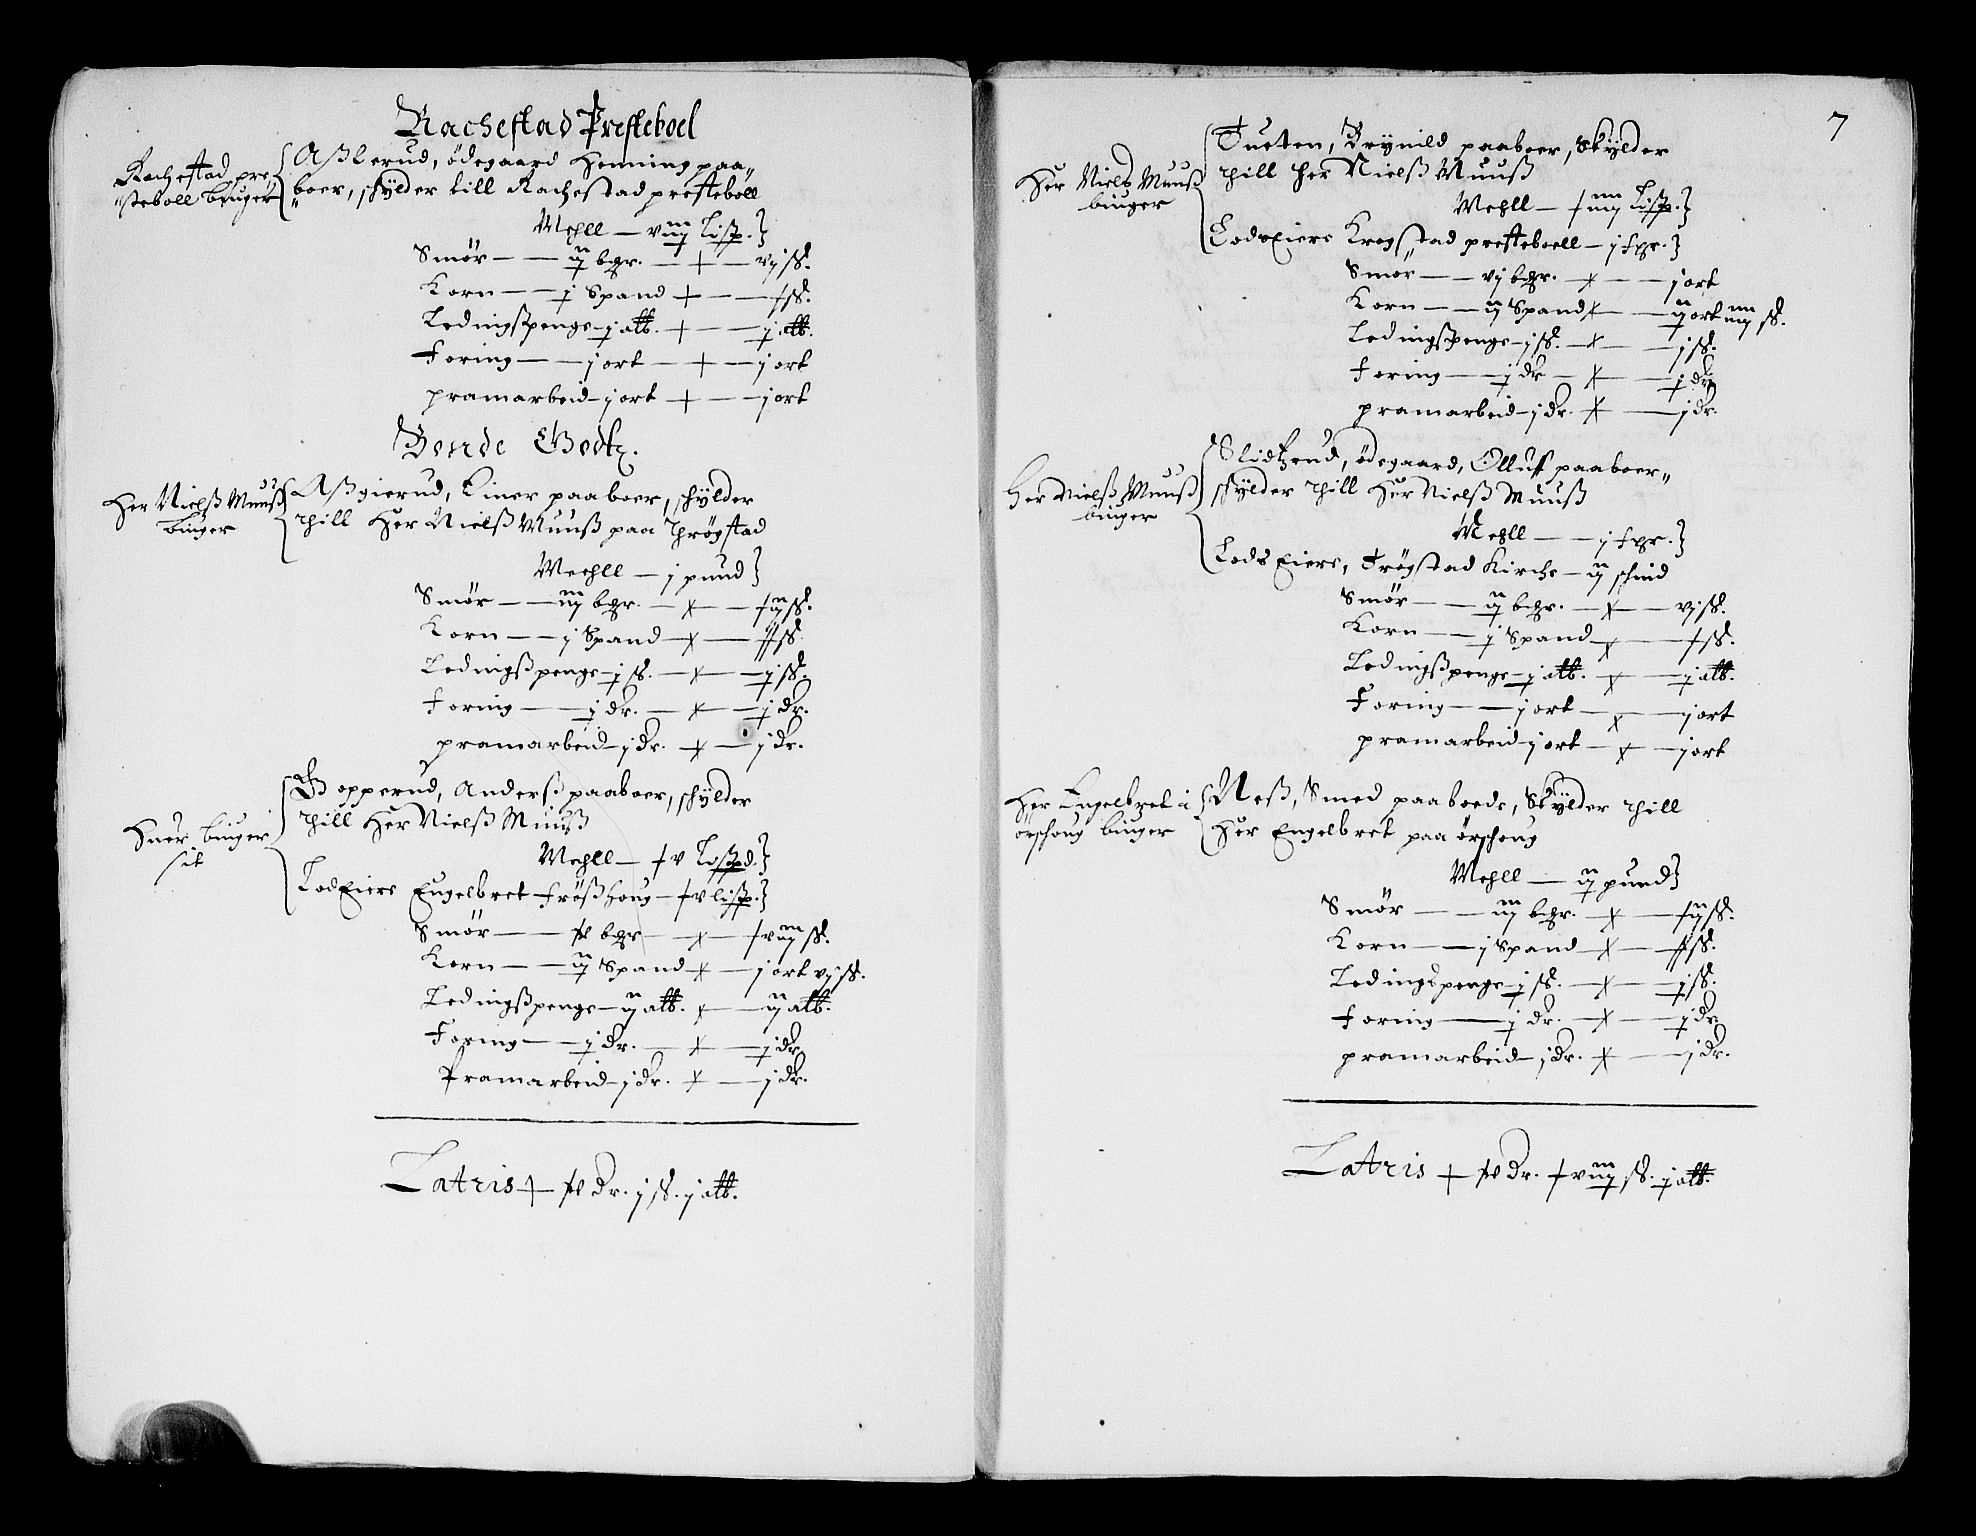 Rachestad Presteboel
Rachestad pre-
steboll bruger
Aßlerud, ödegaard Henning paa-
boer, skylder till Rachestad presteboll
Mehll — viij Lisp.
Smör — ij bgr. — + — vj ß.
Korn — j Spand + — x ß.
Ledingßpenge j alb. + — j alb.
Foring — j ort — + — j ort
pramarbeid j ort + — j ort
Bende Godtz.
Her Nielß Muuß
bruger
Aßgierud, Einer paaboer, schylder
thill Her Nielß Muuß paa Thrögstad
Meehll — j pund
Smör — iij bgr. — x — xij ß.
Korn — j Spand — x — xx ß.
Ledingßpenge j ß. — x — j ß.
Foring — j dr. — x — j dr.
pramarbeid j dr. x — j dr.
Huer bruger
sit
Gopperud, Anderß paaboer, schylder
thill Her Nielß Muuß
Mehll — xv Lißpd.
LodEiere Engelbret Frößhoug xv lißp.
Smör — bgr — x — xviij ß.
Korn — ij Spand x — j ort vj ß.
Ledingßpenge ij alb. x — ij alb.
Foring — j dr. — x — j dr.
Pramarbeid j dr. x — j dr.
Latris + dr. j ß. j alb.
7
Her Niels Muuß
bruger
Tueten, Brynild paaboer, Skylder
thill her Nielß Muuß
Mehll — xiiij Lisp.
LodsEiere Krogstad presteboell — j fgr.
Smör — vj bgr. x — j ort
Korn — ij Spand x — ij ort iiij ß.
Ledingßpenge j ß. x — j ß.
Foring — j dr — x — j dr
pramarbeid j dr. x — j dr.
Her Nielß Muuß
bruger
Slidtzrud, ödegaard, Olluff paaboer
skylder thill Her Nielß Muuß
Mehll — j fgr.
Lods Eiere, Trögstad Kirche — ij schind
Smör — ij bgr. — x — vj ß.
Korn — j Spand x — x ß.
Ledingßpenge j alb. x — j alb.
Foring — j ort — x — j ort
pramarbeid j ort — x — j ort
Her Engelbret i
örschoug bruger
Neß, Smed paaboede, Skylder thill
Her Engelbret paa örschoug
Mehll — ij pund
Smör — iij bgr. — x — xij ß.
Korn — j Spand x — xx ß.
Ledingspenge j ß. x — j ß.
Foring — j dr. — x — j dr.
pramarbeid j dr. x — j dr.
Latris + dr. xviij ß. j alb.